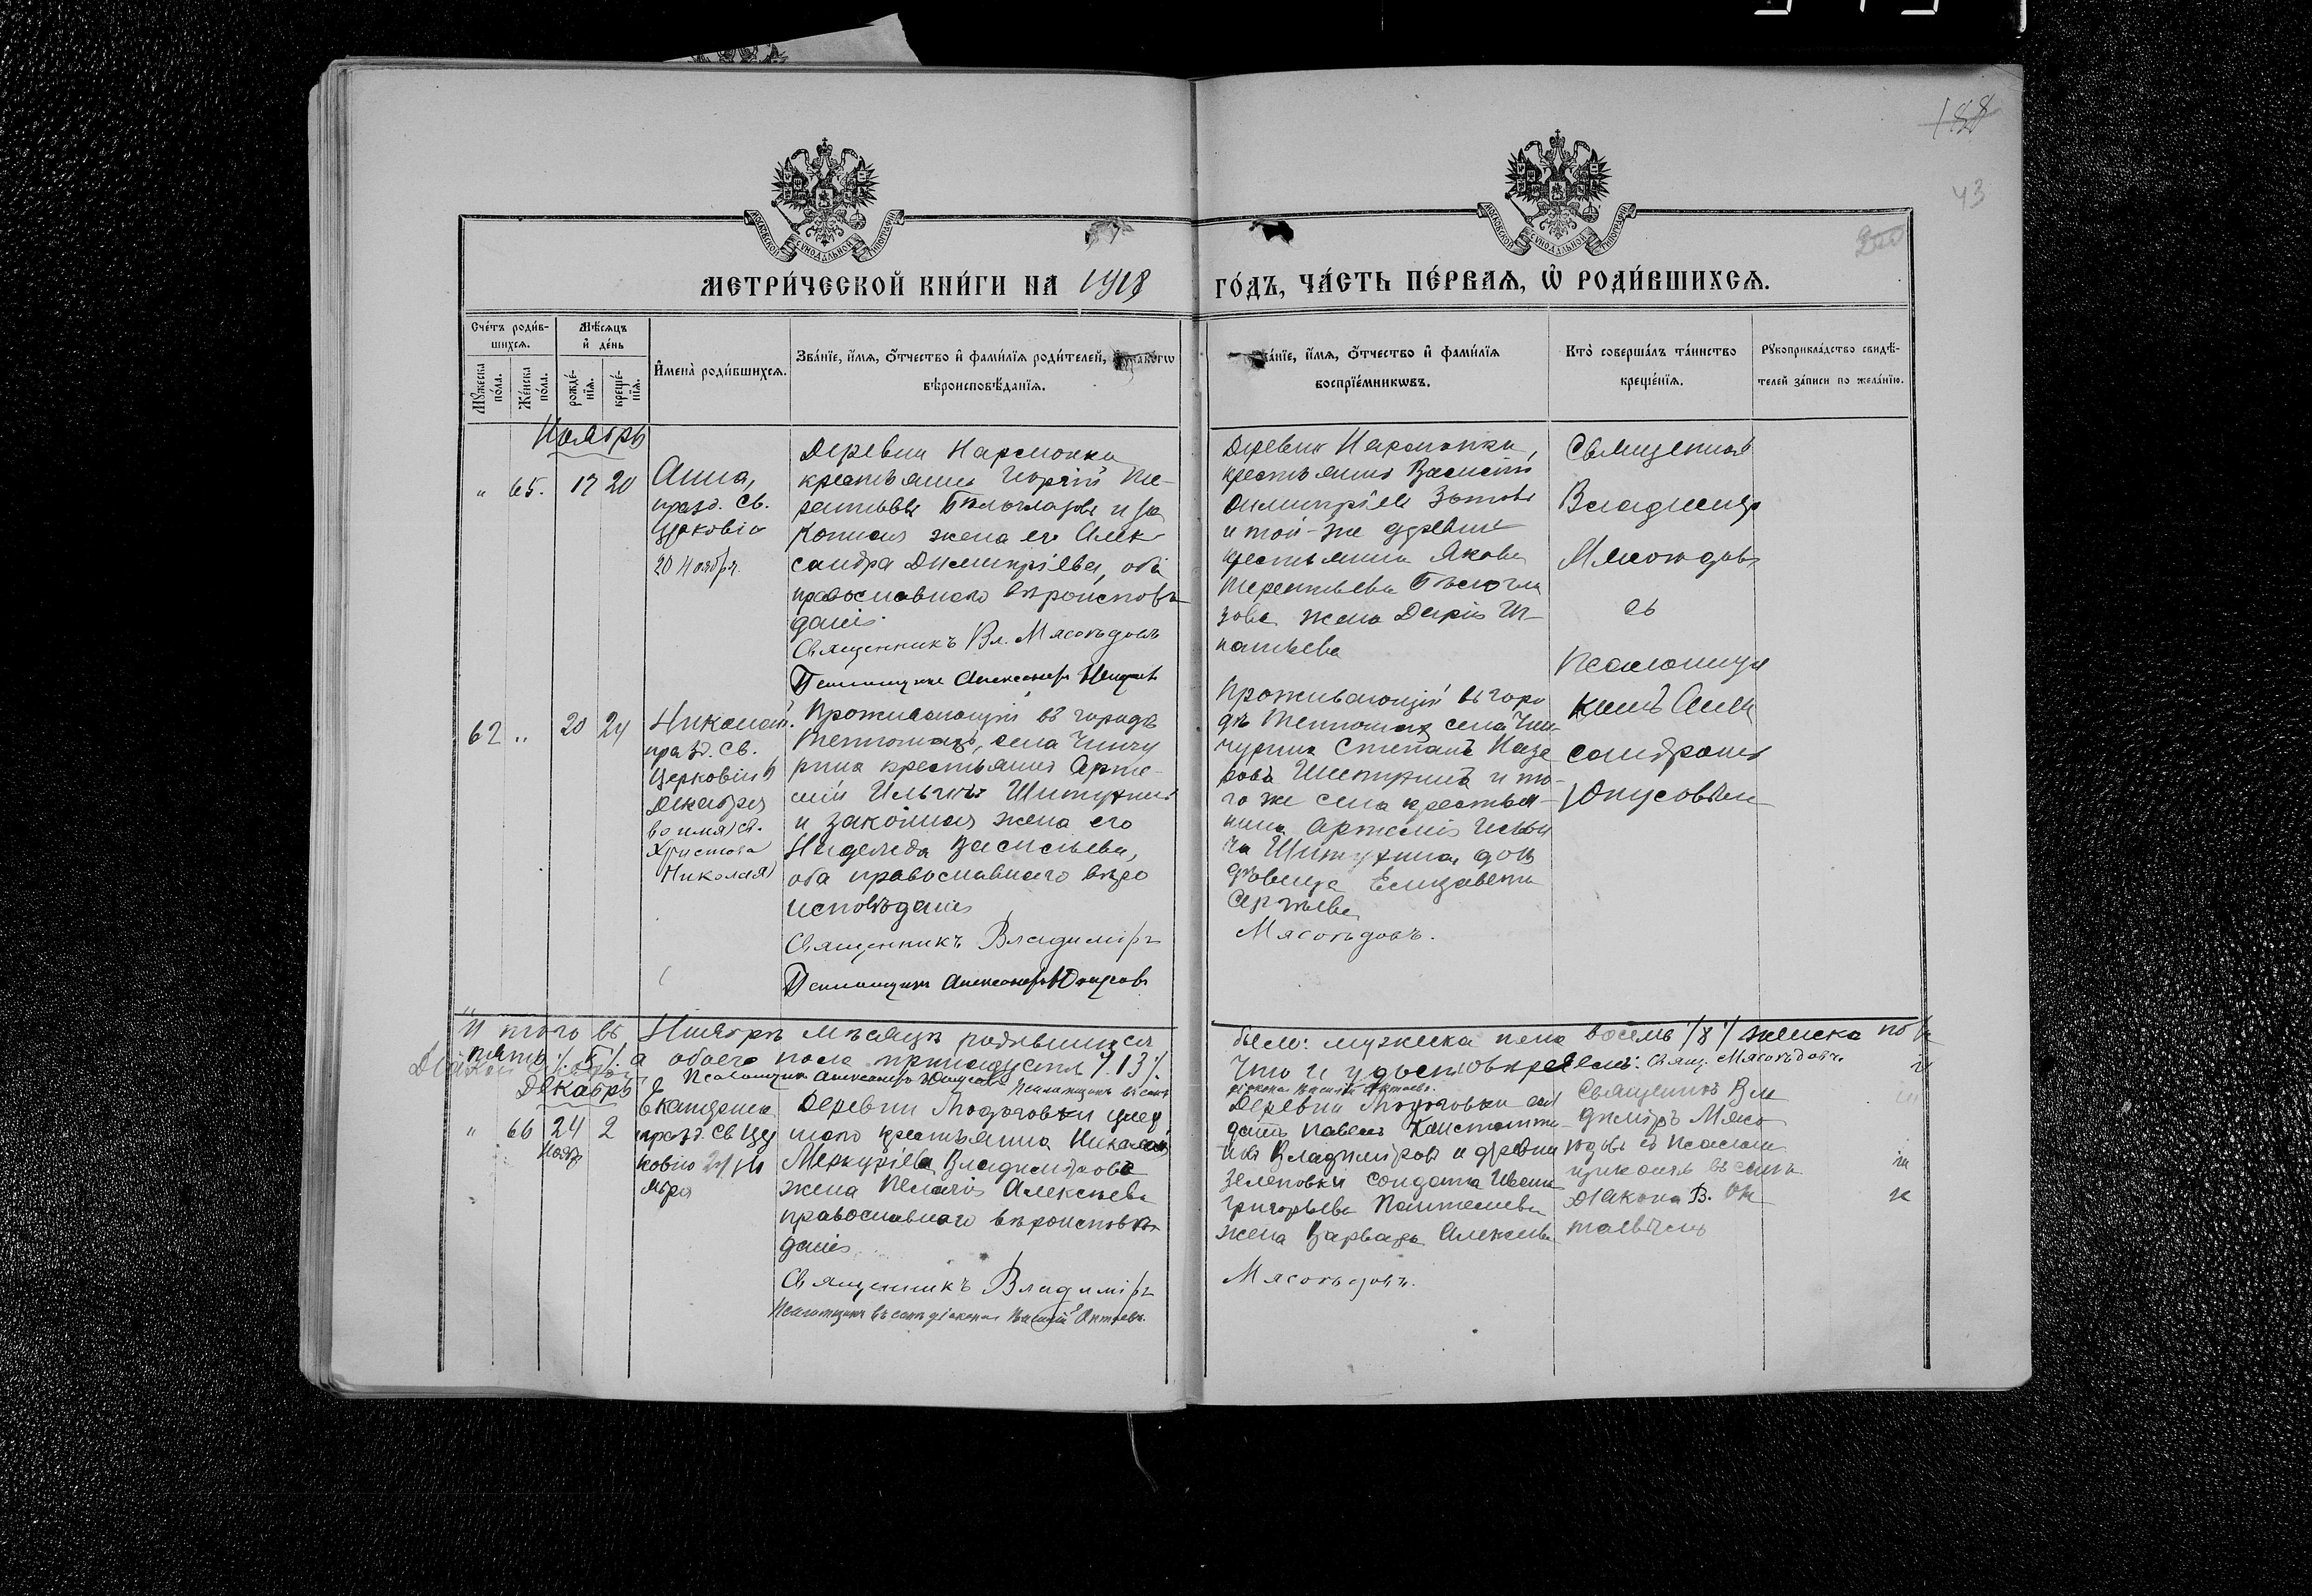 188
43
МЕТРИ́ЧЕСКОЙ КНИ́ГИ НА 1918
ГО́ДЪ, ЧА́СТЬ ПЕ́РВАѦ, Ѽ РОДИ́ВШИХСѦ.
Сче́тъ роди́в-
шихсѧ.
Мꙋжеска по́ла.
Же́нска по́ла.
Мѣ́сѧцъ
и҆ де́нь
рожде́-
нїѧ.
креще́-
нїѧ.
И҆мена̀ роди́вшихсѧ.
Зва́нїе, и҆́мѧ, ѻ҆́тчество и҆ фами́лїѧ роди́телей,
вѣроисповѣ́данїѧ.
а́нїе, и҆́мѧ, ѻ҆́тчество и҆ фами́лїѧ
воспрїе́мникѡвъ.
Кто̀ соверша́лъ та́инство
креще́нїѧ.
Рꙋкоприкла́дство свидѣ́-
телей за́писи по жела́нїю.
Ноябрь
" 65. 17 20
Анна,
празд. Св.
Церковію
20 Ноября.
Деревни Нармонки
крестьянинъ
рентьевъ Бѣлоглазовъ и за
конная жена его Алек-
сандра Димитріева, оба
православнаго вѣроисповѣ
данія.
Священникъ Вл. Мясоѣдовъ
Псаломщикъ Александръ
Деревни Нармонки,
крестьянинъ Василій
Димитріевъ Зотовъ
и той-же деревни
крестьянина Якова
Терентьева Бѣлогла
зова жена Дарія Иг-
натьева
Священникъ
Владиміръ
Мясоѣдовъ
съ
Псаломщи
комъ Алек
сандромъ
Юнусовымъ
62 " 20 24
Николай.
празд. Св.
Церковію 6
Декабря
во имя) св.
Христова
Николая)
Проживающій въ городѣ
села Чинчу
рина крестьянинъ Арте-
мій Ильинъ
и законная жена его
Надежда Васильева,
оба православнаго вѣро
исповѣданія
Священникъ Владиміръ
Псаломщикъ Александръ Юнусовъ
Проживающій въ горо
дѣ села Чин-
чурина Степанъ Наза
ровъ и то-
го же села крестья-
нина Артемія Ильи
на дочь
дѣвица Елизавета
Мясоѣдовъ.
Итого въ Ноябрѣ мѣсяцѣ родившихся
было: мужеска пола восемь /8/ женска по
пять /5/ а обоего пола тринадцать /13/.
Что и удостовѣряемъ: Свящ. Мясоѣдовъ.
Псаломщикъ Александръ Юнусовъ
Псаломщикъ въ санѣ
діакона Василій Октаевъ.
Декабрь
" 66 24 2
Нояб.
Екатерина
празд. Св Цер
ковію 24 Но
ября
Деревни
крестьянина Николай
Меркуріева Владимірова
жена Пелагія Алексѣева
православнаго вѣроисповѣ
данія
Священникъ Владиміръ
Псаломщикъ въ санѣ діакона Василій Октаевъ.
Деревни сол
датъ Павелъ Константи-
новъ Владиміровъ и деревни
Зеленовки солдата Ивана
Григорьева Пантелеева
жена Варвара Алексѣева
Мясоѣдовъ.
Священникъ Вла
диміръ Мясо
ѣдовъ съ псалом
щикомъ въ санѣ
діакона В. Ок
таевымъ